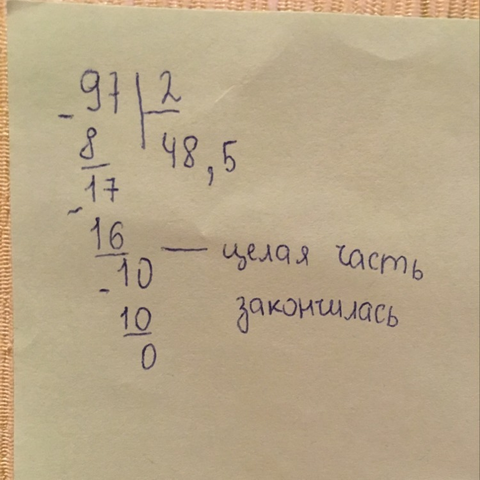 97 2
- 8 48,5
17
- 16 — целая часть
10 закончилась
- 10
0